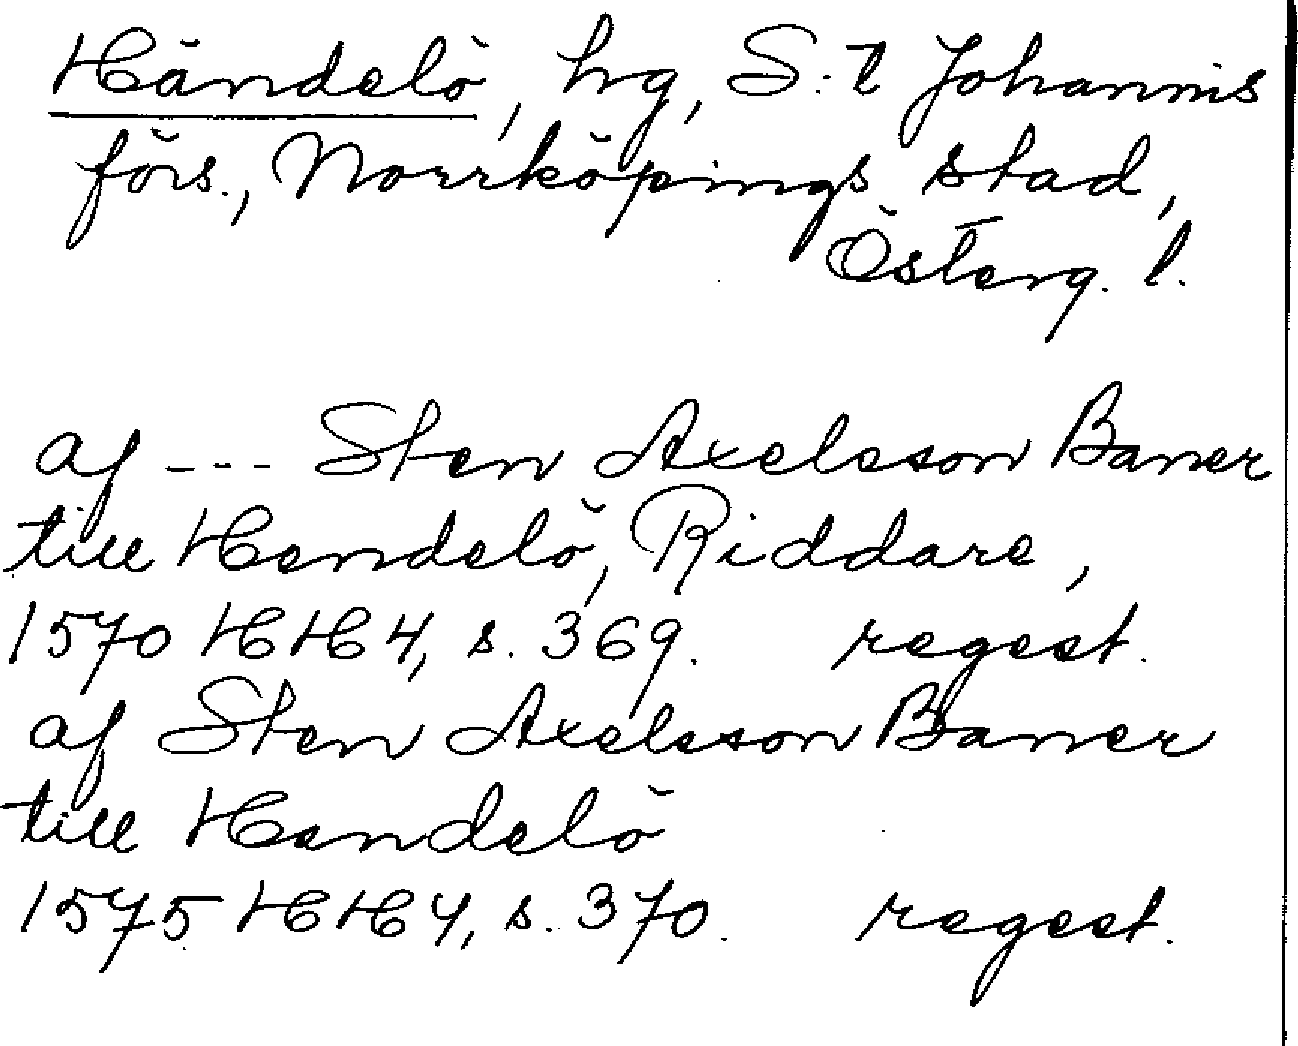 Händelö, hg, S:t Johannis
förs., Norrköpings stad,
Österg. l.
af --- Sten Axelsson Baner
till Hendelö, Riddare,
1570 HH 4, s. 369. regest.
af Sten Axelsson Baner
till Hendelö
1575 HH 4, s. 370. regest.